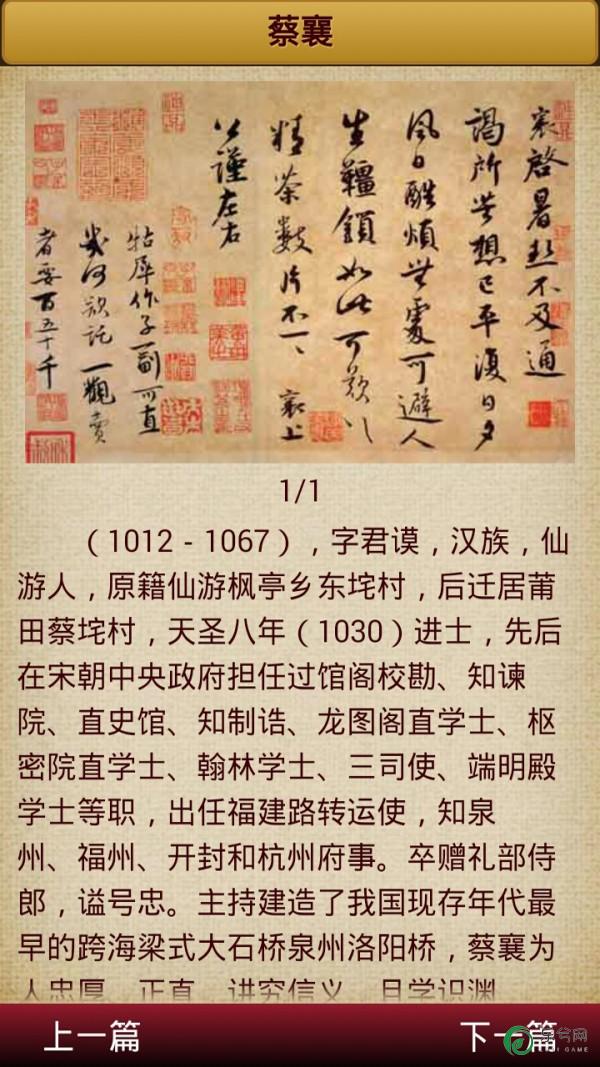 蔡襄
襄启暑热不及通
谒所苦想已平复日夕
风日酷烦无处可避人
生缰锁如此可叹可叹
精茶数片不一一襄上
公谨左右
牯犀作子一副可直
几何欲托一观卖
者要百五十千
1/1
(1012-1067),字君谟,汉族,仙
游人,原籍仙游枫亭乡东垞村,后迁居莆
田蔡垞村,天圣八年(1030)进士,先后
在宋朝中央政府担任过馆阁校勘、知谏
院、直史馆、知制诰、龙图阁直学士、枢
密院直学士、翰林学士、三司使、端明殿
学士等职,出任福建路转运使,知泉
州、福州、开封和杭州府事。卒赠礼部侍
郎,谥号忠。主持建造了我国现存年代最
早的跨海梁式大石桥泉州洛阳桥,蔡襄为
人忠厚、正直,讲究信义,且学识渊
上一篇
下一篇